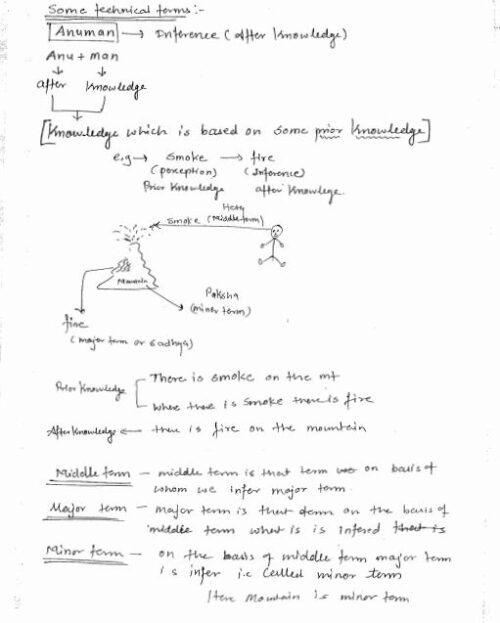 Some technical terms:-
Anuman → Inference (after knowledge)
Anu + man
after knowledge
[Knowledge which is based on some prior knowledge]
e.g → smoke → fire
(perception) (Inference)
Prior Knowledge after Knowlege
Hetu
smoke (Middle term)
Mountain
Paksha
(minor term)
fire
(major term or sadhya)
Prior Knowledge
There is smoke on the mt
where there is smoke there is fire
After Knowledge ← there is fire on the mountain
Middle term - middle term is that term on basis of
whom we infer major term.
Major term - major term is that term on the basis of
middle term what is is infered that is
Minor term - on the basis of middle term major term
is infer i.e Called minor term
Here Mountain is minor term